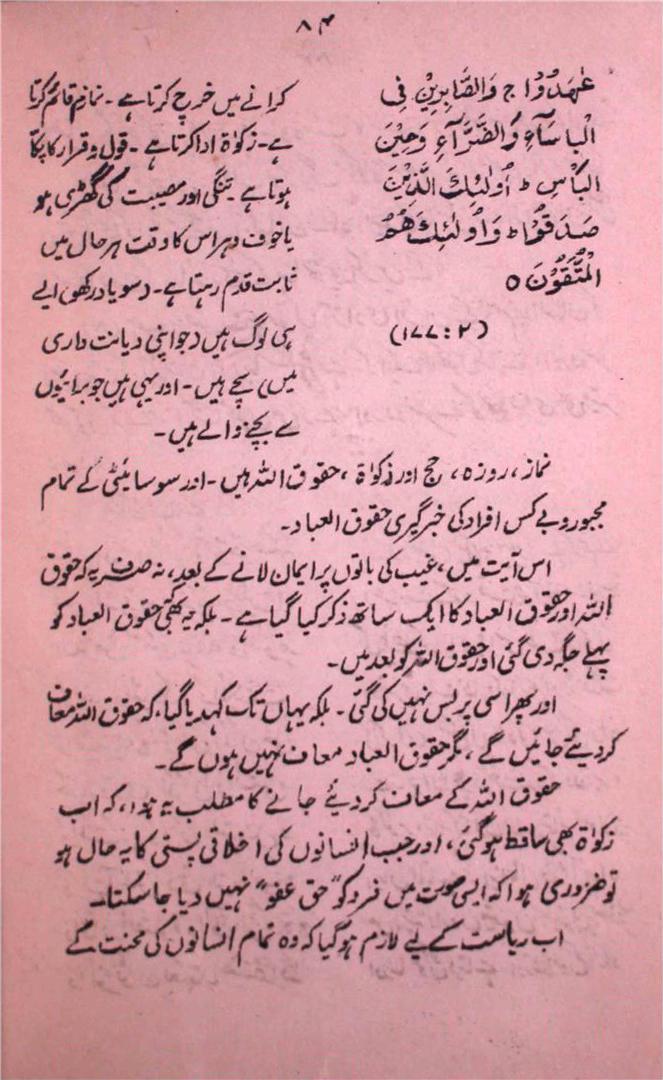 ۸۴
عٰهَدُوْا ج وَالصّٰابِرِيْنَ فِى
الْبَاسَآءِ وَالضَّرَّآءِ وَحِيْنَ
الْبَاْسِ ط اُولٰئِكَ الَّذِيْنَ
صَدَقُوْا ط وَاُولٰئِكَ هُمُ
الْمُتَّقُوْنَ ○
(۲ : ۱۷۷)
کرانے میں خرچ کرتا ہے۔ نماز قائم کرتا
ہے۔ زکوٰۃ ادا کرتا ہے۔ قول و قرار کا پکا
ہوتا ہے۔ تنگی اور مصیبت کی گھڑی ہو
یا خوف و ہراس کا وقت ہر حال میں
ثابت قدم رہتا ہے۔ (سو یاد رکھو) ایسے
ہی لوگ ہیں (جو اپنی دیانت داری
میں) سچے ہیں۔ اور یہی ہیں جو برائیوں
سے بچنے والے ہیں۔
نماز، روزہ، حج اور زکوٰۃ، حقوق اللہ ہیں۔ اور سوسائیٹی کے تمام
مجبور و بے کس افراد کی خبرگیری حقوق العباد۔
اس آیت میں، غیب کی باتوں پر ایمان لانے کے بعد، نہ صرف یہ کہ حقوق
اللہ اور حقوق العباد کا ایک ساتھ ذکر کیا گیا ہے۔ بلکہ یہ بھی حقوق العباد کو
پہلے جگہ دی گئی اور حقوق اللہ کو بعد میں۔
اور پھر اسی پر بس نہیں کی گئی۔ بلکہ یہاں تک کہدیا گیا، کہ حقوق اللہ معاف
کردیئے جائیں گے، مگر حقوق العباد معاف نہیں ہوں گے۔
حقوق اللہ کے معاف کردیئے جانے کا مطلب یہ ہوا، کہ اب
زکوٰۃ بھی ساقط ہوگئی، اور جب انسانوں کی اخلاقی پستی کا یہ حال ہو
تو ضروری ہوا کہ ایسی صورت میں فرد کو "حق عفو" نہیں دیا جاسکتا۔
اب ریاست کے لیے لازم ہوگیا کہ وہ تمام انسانوں کی محنت کے